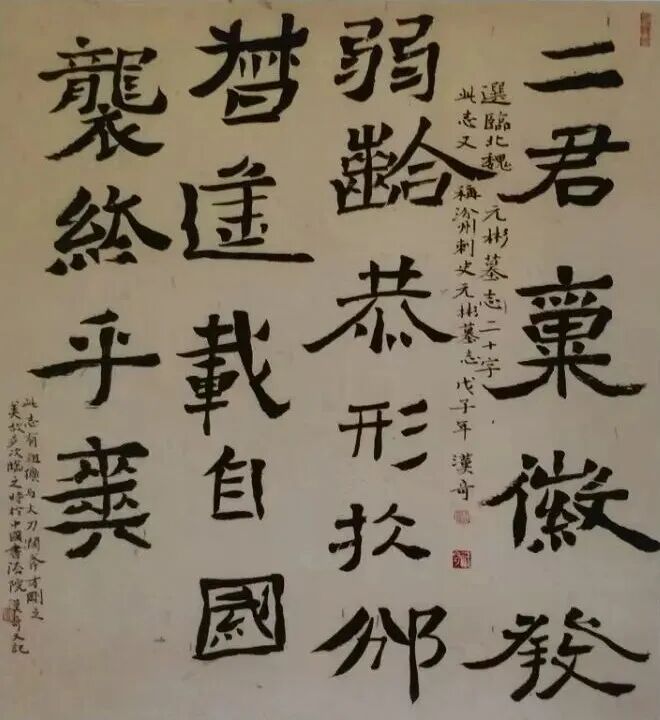 二君稟徽發
弱齡恭形扵邠
載自國
襲乎
選臨北魏元彬墓志二十字
此志又稱汾州刺史元彬墓志戊子年漢奇
此志有粗獷与大刀闊斧方剛之
美故多次臨之時於中國書法院漢奇又記